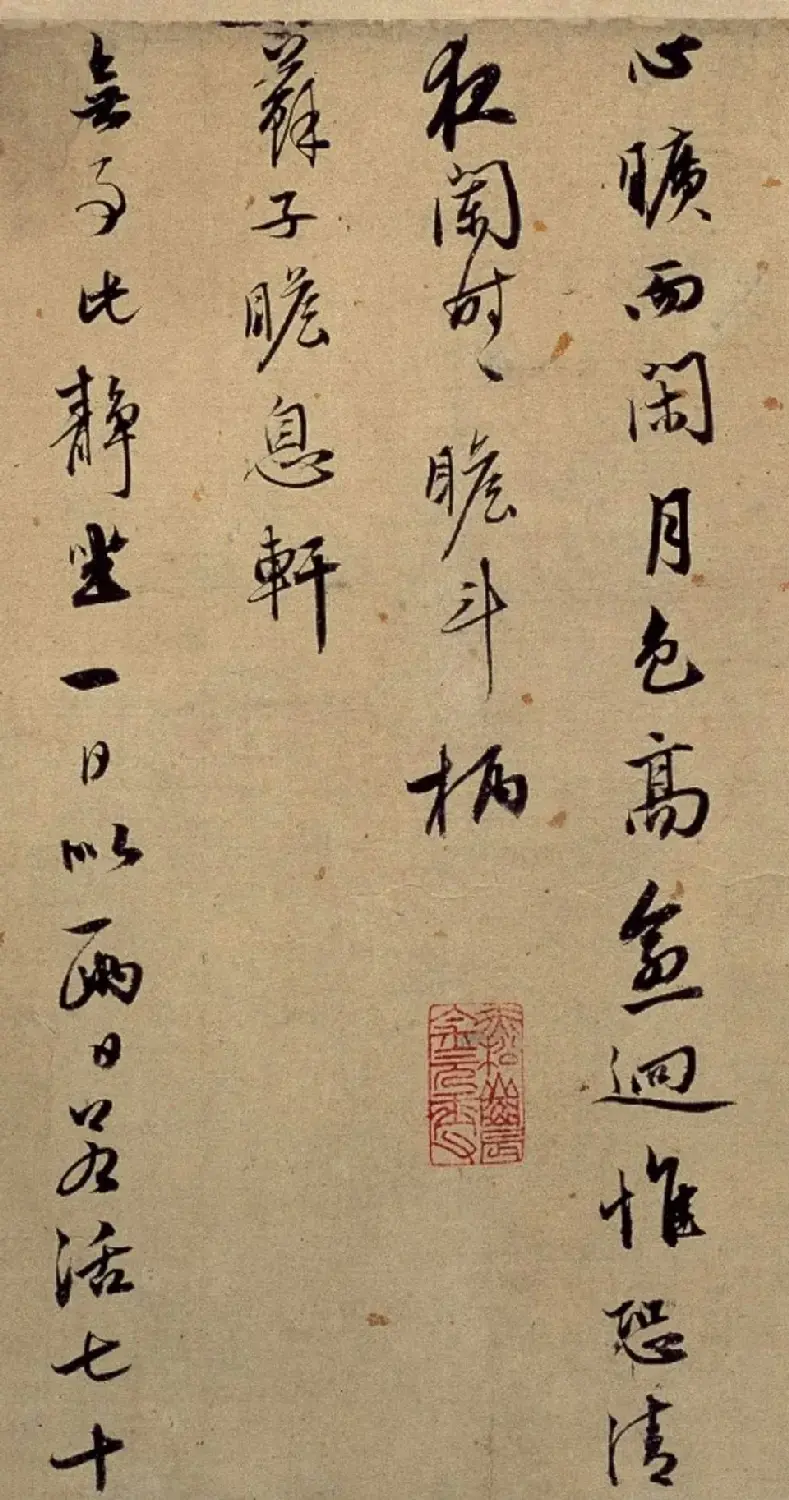 心曠而閑月色高愈迥惟恐清
夜闌時々瞻斗柄
蘇子瞻息軒
無事此靜坐一日以兩日若活七十